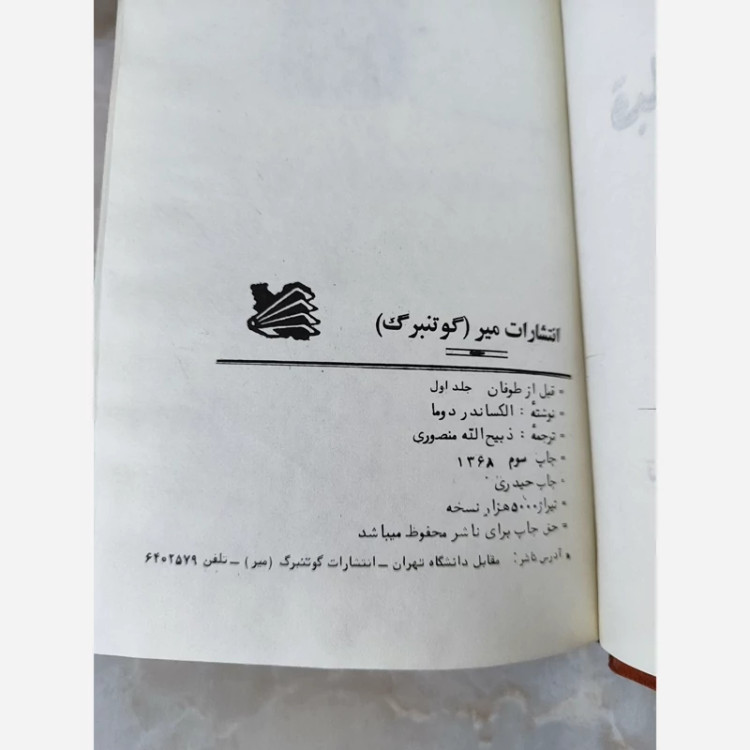 انتشارات میر (گوتنبرگ)
* قبل از طوفان جلد اول
* نوشتهٔ : الکساندر دوما
* ترجمهٔ : ذبیح‌الله منصوری
* چاپ سوم ۱۳۶۸
* چاپ حیدری
* تیراژ ۵۰۰۰ هزار نسخه
* حق چاپ برای ناشر محفوظ میباشد
* آدرس ناشر: مقابل دانشگاه تهران ــ انتشارات گوتنبرگ (میر) ــ تلفن ۶۴۰۲۵۷۹